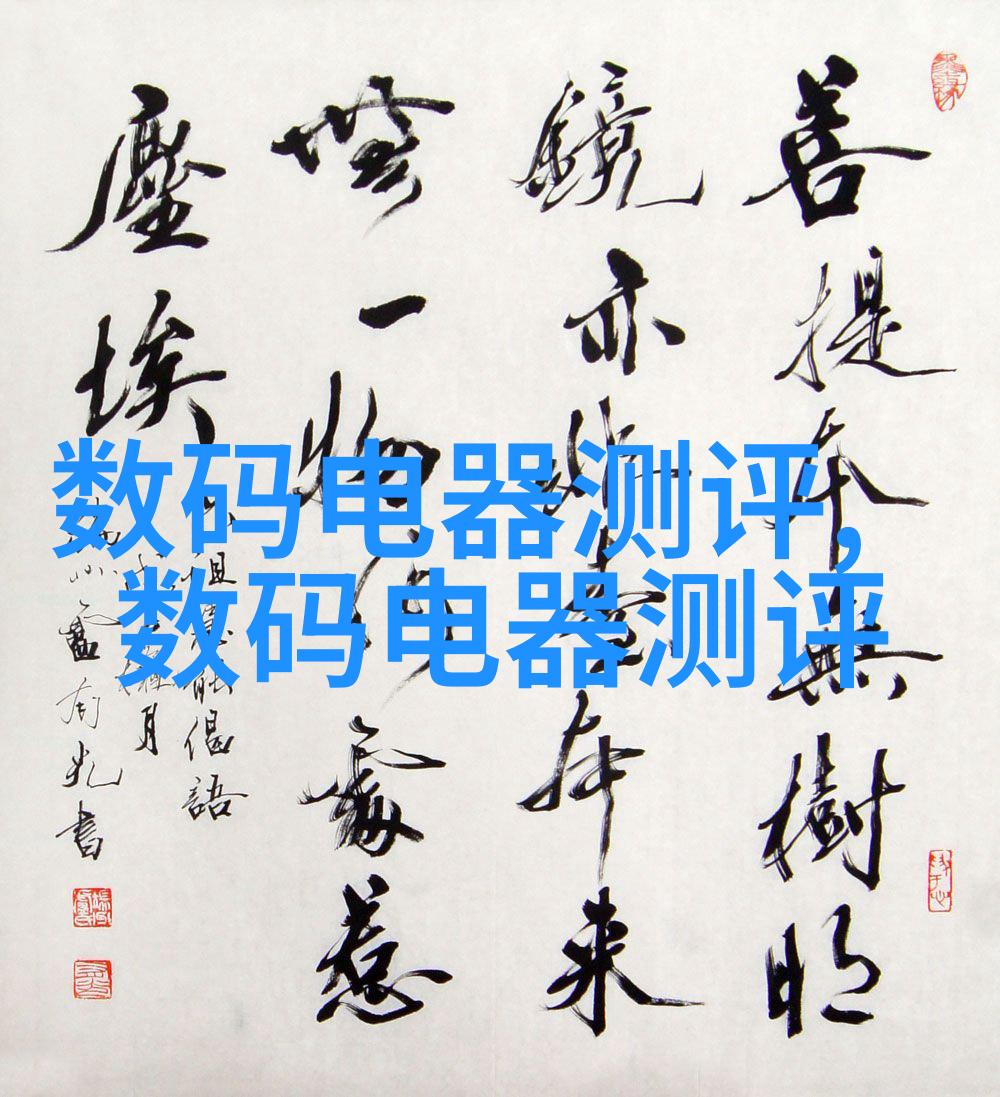 菩提本無樹明
鏡亦非臺本来
無一物何處惹
塵埃
祖慧能偈語
月
盧有光書
数码电器测评,
数码电器测评